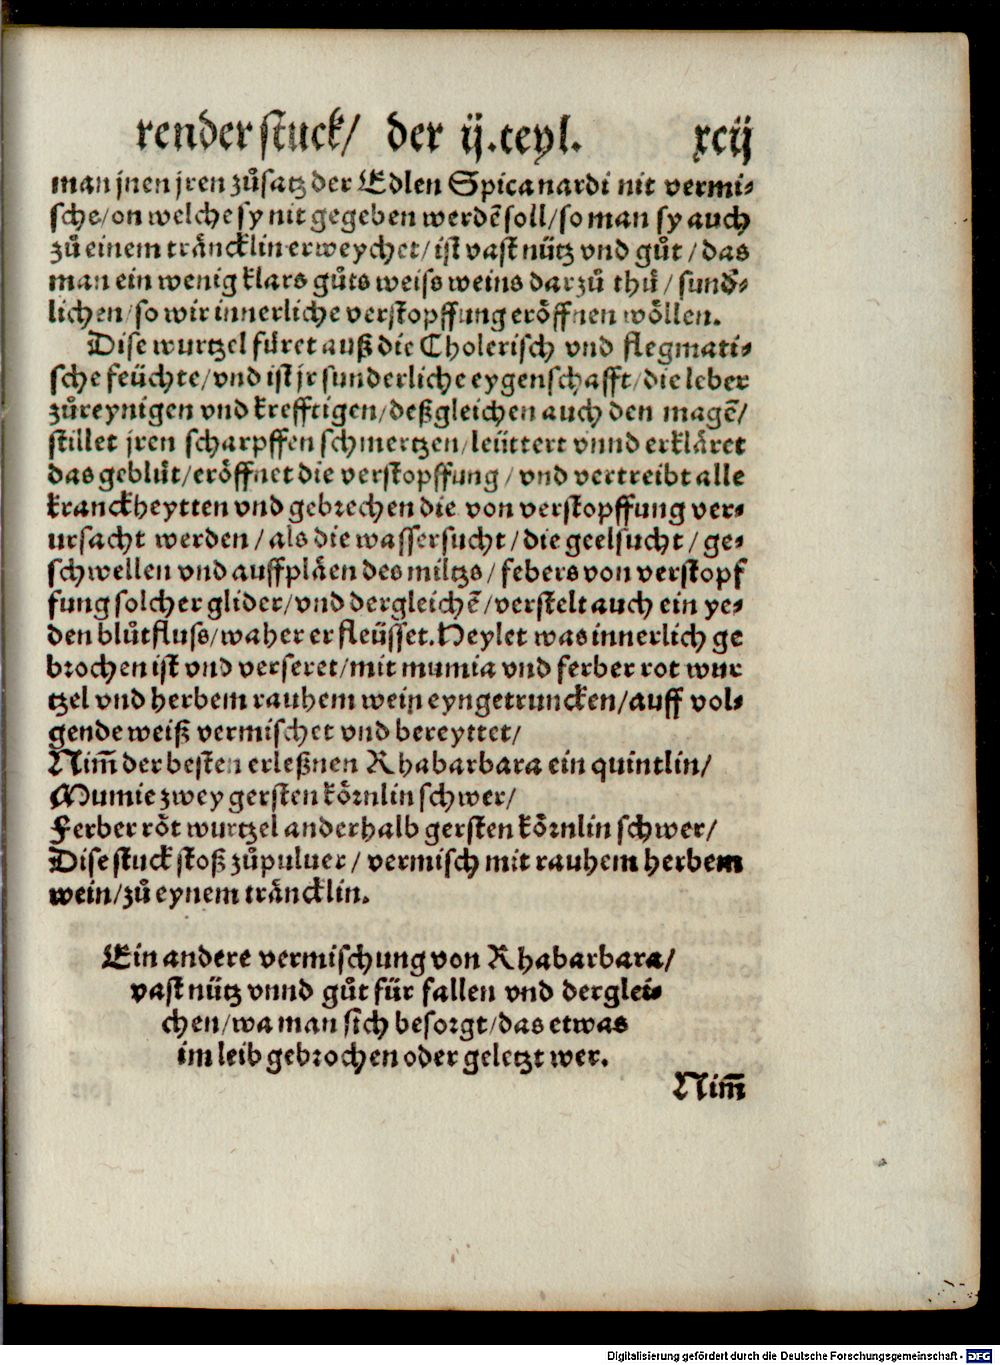 render stuck/ der ij.teyl. xcij
man jnen jren zůsatz der Edlen Spica nardi nit vermi⸗
sche/on welche sy nit gegeben werdē soll/so man sy auch
zů einem träncklin erweychet/ist vast nütz vnd gůt/das
man ein wenig klars gůts weiss weins darzů thů/sund⸗
lichen/so wir innerliche verstopffung eröffnen wöllen.
Dise wurtzel füret auß die Cholerisch vnd flegmati⸗
sche feüchte/vnd ist jr sunderliche eygenschafft/die leber
zůreynigen vnd krefftigen/deßgleichen auch den magē/
stillet jren scharpffen schmertzen/leüttert vnnd erkläret
das geblůt/eröffnet die verstopffung/vnd vertreibt alle
kranckheytten vnd gebrechen die von verstopffung ver⸗
ursacht werden/als die wassersucht/die geelsucht/ge⸗
schwellen vnd auffpläen des miltzs/febers von verstopf
fung solcher glider/vnd dergleichē/verstelt auch ein ye⸗
den blůtfluss/waher er fleüsset. Heylet was innerlich ge
brochen ist vnd verseret/mit mumia vnd ferber rot wur
tzel vnd herbem rauhem wein eyngetruncken/auff vol⸗
gende weiß vermischet vnd bereyttet/
Nim̄ der besten erleßnen Rhabarbara ein quintlin/
Mumie zwey gersten körnlin schwer/
Ferber röt wurtzel anderhalb gersten körnlin schwer/
Dise stuck stoß zůpuluer/vermisch mit rauhem herbem
wein/zů eynem träncklin.
Ein andere vermischung von Rhabarbara/
vast nütz vnnd gůt für fallen vnd derglei⸗
chen/wa man sich besorgt/das etwas
im leib gebrochen oder geletzt wer.
Nim̄
Digitalisierung gefördert durch die Deutsche Forschungsgemeinschaft - DFG